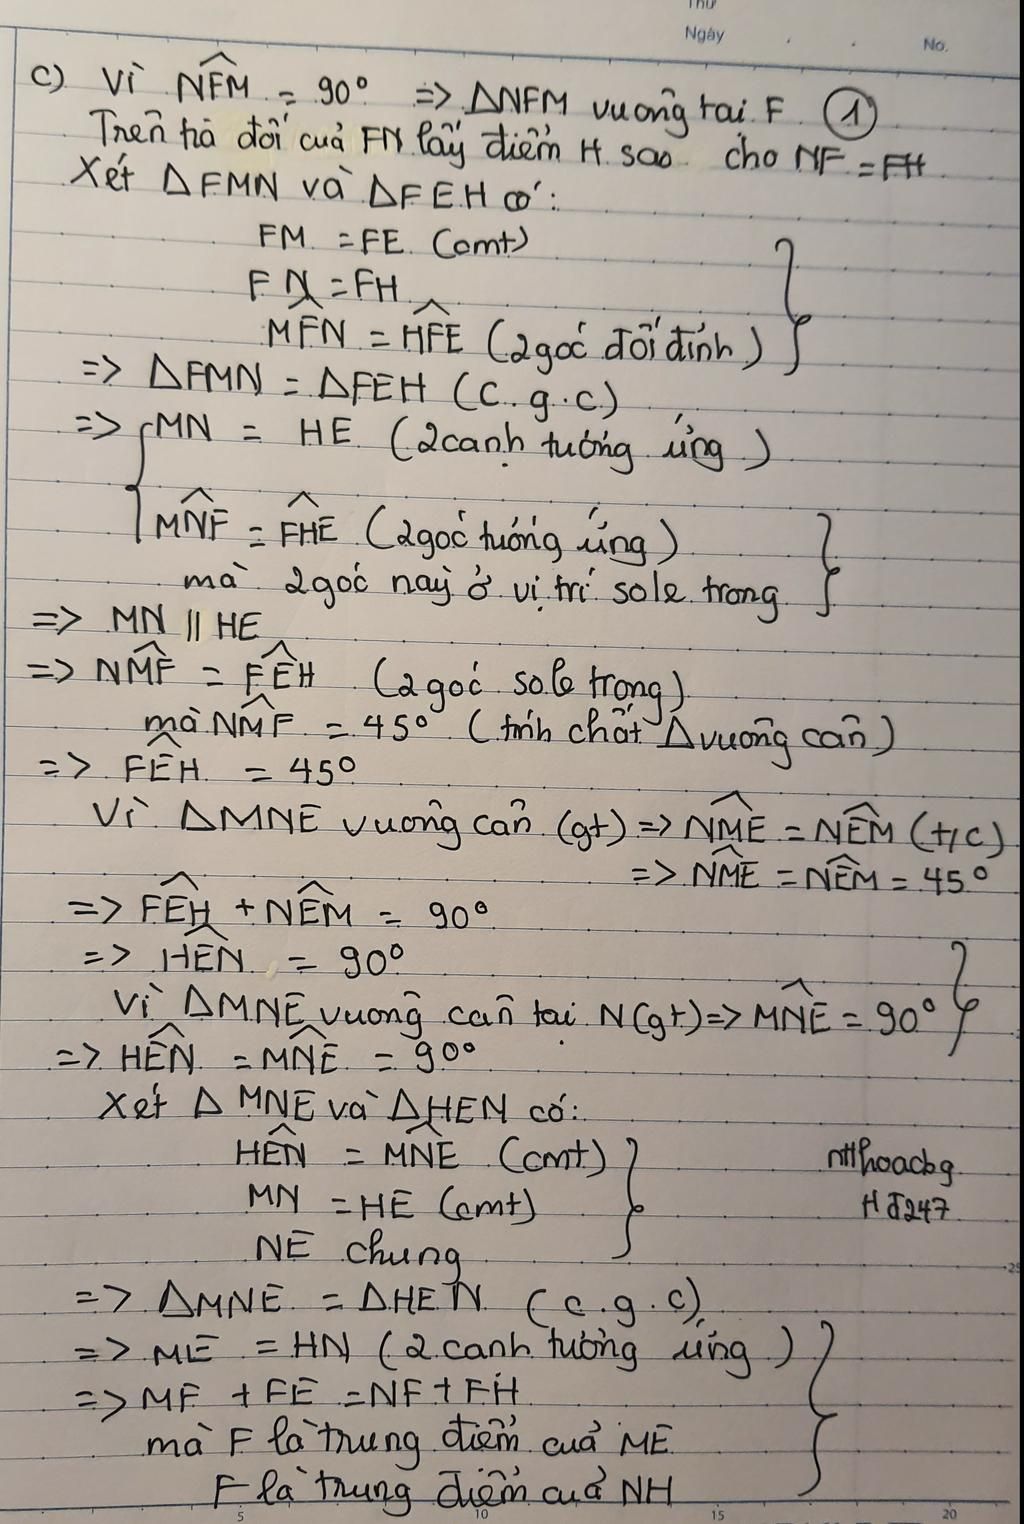 Thứ
Ngày . . No.
c) Vì N̂FM = 90° => ΔNFM vuông tại F ①
Trên tia đối của FN lấy điểm H sao cho NF = FH
Xét ΔFMN và ΔFEH có:
FM = FE (cmt)
FN = FH
M̂FN = ĤFE (2góc đối đỉnh)
=> ΔFMN = ΔFEH (c.g.c)
=> MN = HE (2cạnh tương ứng)
M̂NF = F̂HE (2góc tương ứng)
mà 2góc này ở vị trí sole trong
=> MN || HE
=> NM̂F = FÊH (2góc sole trong)
mà NM̂F = 45° (tính chất Δvuông cân)
=> FÊH = 45°
Vì ΔMNE vuông cân (gt) => NM̂E = NÊM (t/c)
=> NM̂E = NÊM = 45°
=> FÊH + NÊM = 90°
=> HÊN = 90°
Vì ΔMNE vuông cân tại N(gt) => MN̂E = 90°
=> HÊN = MN̂E = 90°
Xét ΔMNE và ΔHEN có:
HÊN = MN̂E (cmt)
MN = HE (cmt)
NE chung
nthoacbg
Hđ247
=> ΔMNE = ΔHEN (c.g.c)
=> ME = HN (2cạnh tương ứng)
=> MF + FE = NF + FH
mà F là trung điểm của ME
F là trung điểm của NH
5 10 15 20
25